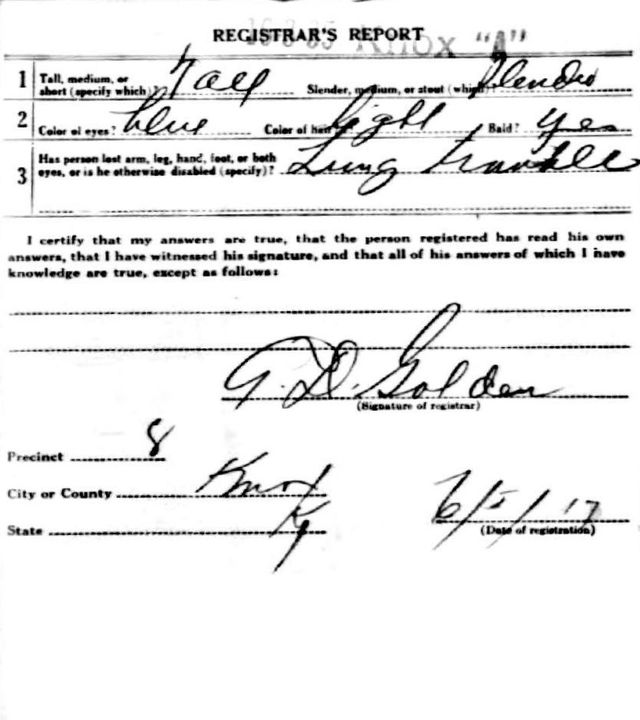 REGISTRAR'S REPORT
Knox "A"
1 Tall, medium, or short (specify which)? Tall Slender, medium, or stout (which)? Slender
2 Color of eyes? blue Color of hair? light Bald? yes
3 Has person lost arm, leg, hand, foot, or both
eyes, or is he otherwise disabled (specify)? Lung trouble
I certify that my answers are true, that the person registered has read his own
answers, that I have witnessed his signature, and that all of his answers of which I have
knowledge are true, except as follows:
G. D. Golden
(Signature of registrar)
Precinct 8
City or County Knox
State Ky
6/5/17
(Date of registration)